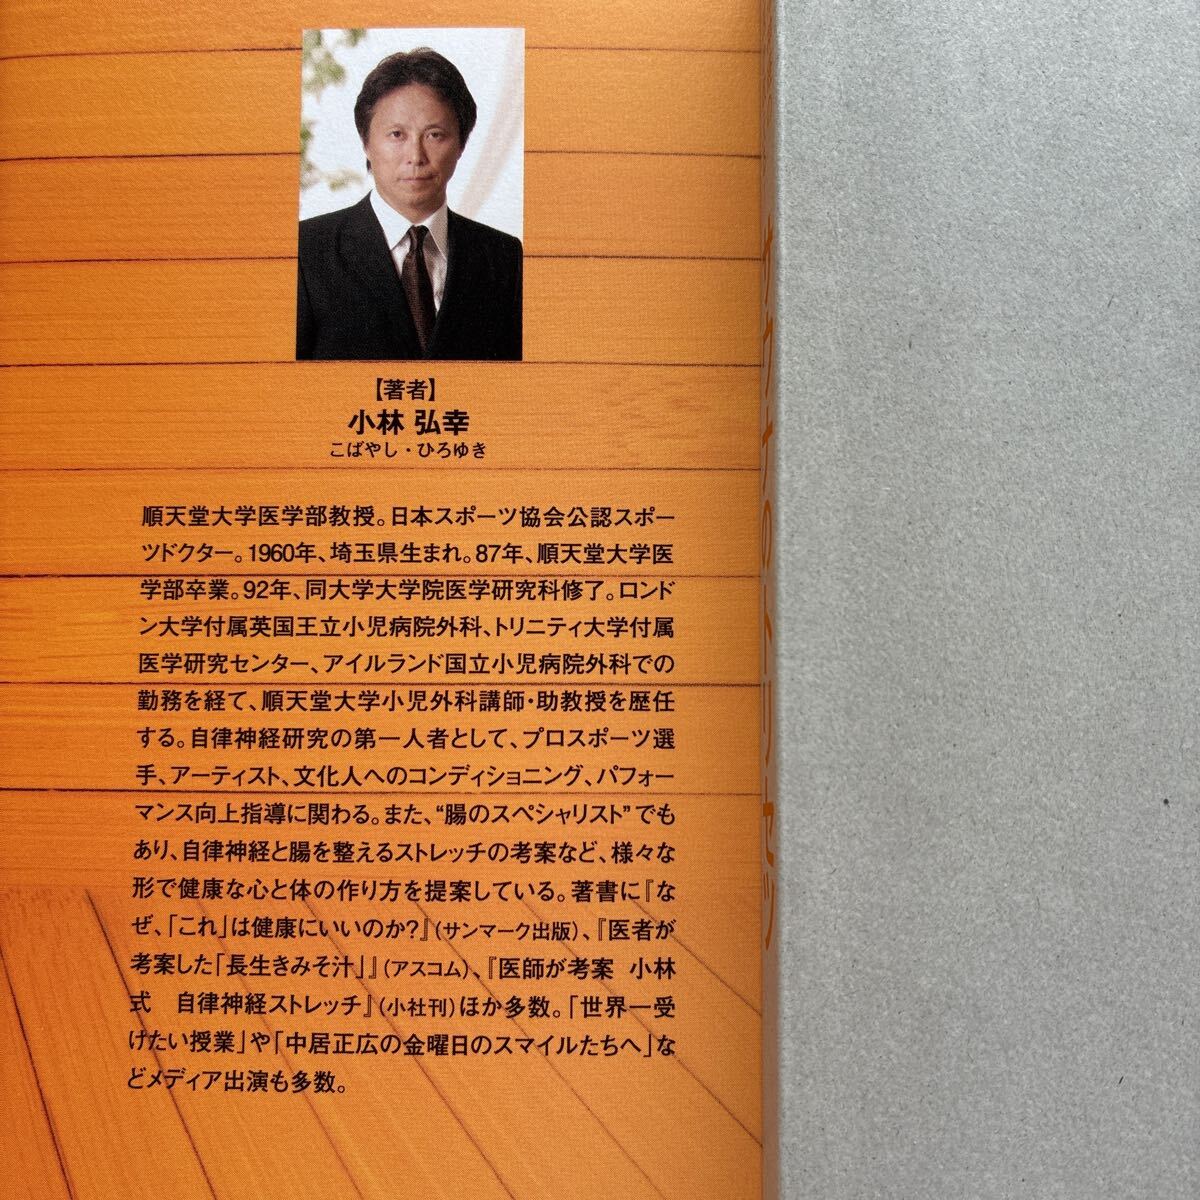 【著者】
小林 弘幸
こばやし・ひろゆき
順天堂大学医学部教授。日本スポーツ協会公認スポー
ツドクター。1960年、埼玉県生まれ。87年、順天堂大学医
学部卒業。92年、同大学大学院医学研究科修了。ロンド
ン大学付属英国王立小児病院外科、トリニティ大学付属
医学研究センター、アイルランド国立小児病院外科での
勤務を経て、順天堂大学小児外科講師・助教授を歴任
する。自律神経研究の第一人者として、プロスポーツ選
手、アーティスト、文化人へのコンディショニング、パフォー
マンス向上指導に関わる。また、“腸のスペシャリスト”でも
あり、自律神経と腸を整えるストレッチの考案など、様々な
形で健康な心と体の作り方を提案している。著書に『な
ぜ、「これ」は健康にいいのか?』（サンマーク出版）、『医者が
考案した「長生きみそ汁」』（アスコム）、『医師が考案 小林
式 自律神経ストレッチ』（小社刊）ほか多数。「世界一受
けたい授業」や「中居正広の金曜日のスマイルたちへ」な
どメディア出演も多数。